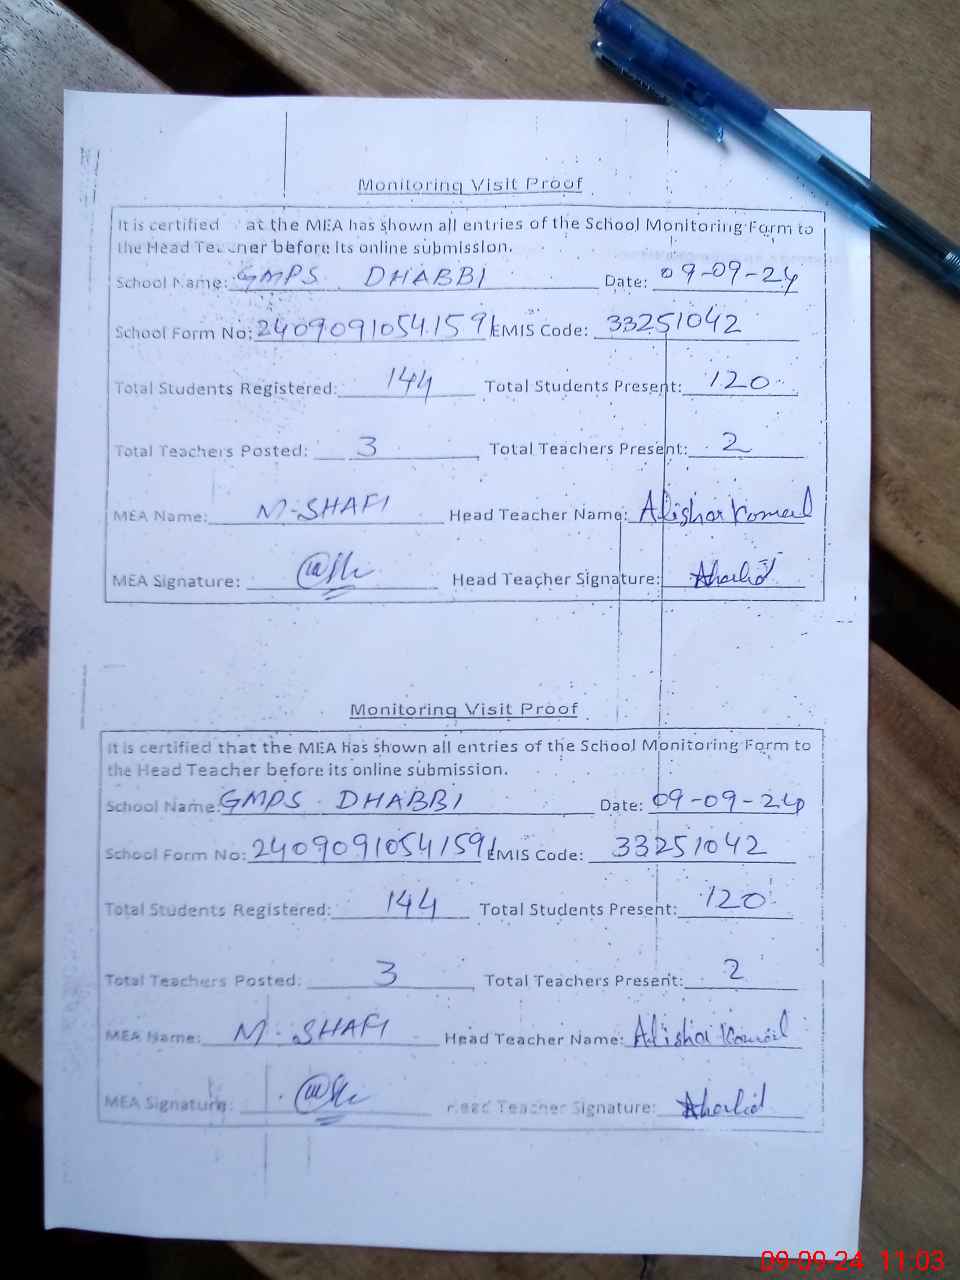 Monitoring Visit Proof
It is certified at the MEA has shown all entries of the School Monitoring Form to
the Head Teacher before its online submission.
School Name: GMPS DHABBI Date: 09-09-24
School Form No: 24090910541591 EMIS Code: 33251042
Total Students Registered: 144 Total Students Present: 120
Total Teachers Posted: 3 Total Teachers Present: 2
MEA Name: M-SHAFI Head Teacher Name: Alisha
MEA Signature: Head Teacher Signature:
Monitoring Visit Proof
It is certified that the MEA has shown all entries of the School Monitoring Form to
the Head Teacher before its online submission.
School Name: GMPS DHABBI Date: 09-09-24
School Form No: 24090910541591 EMIS Code: 33251042
Total Students Registered: 144 Total Students Present: 120
Total Teachers Posted: 3 Total Teachers Present: 2
MEA Name: M. SHAFI Head Teacher Name: Alisha
MEA Signature: Head Teacher Signature:
09-09-24 11:03